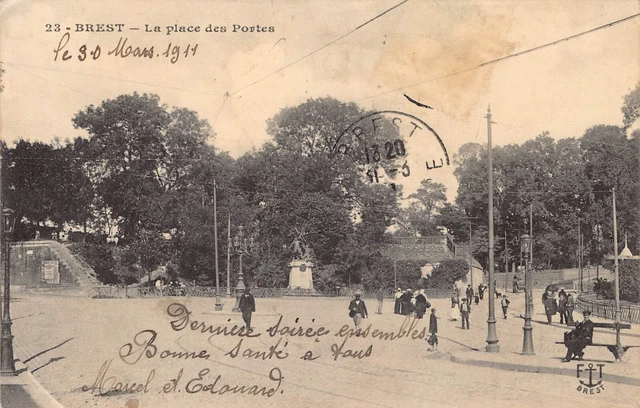 23 - BREST - La place des Portes
le 30 Mars. 1911
BREST
18 20
31-3
E
Dernière soirée ensembles
Bonne santé à tous
Marcel et Edouard.
FT
BREST